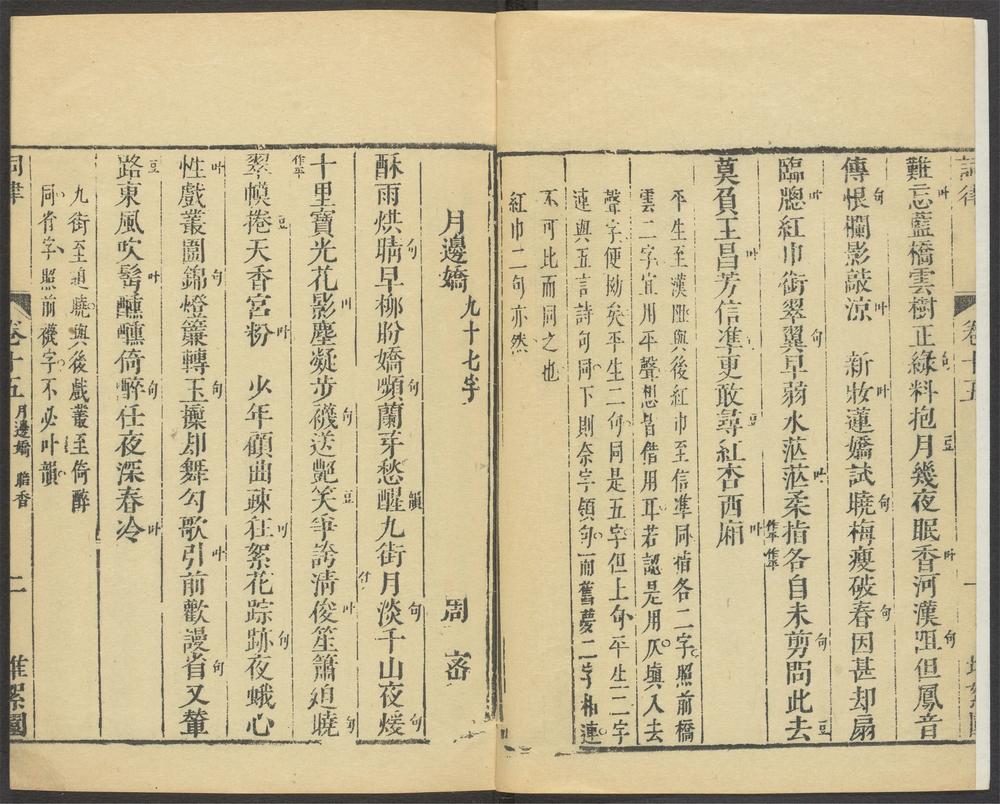 詞律
卷十五
一
堆絮園
難忘藍橋雲樹正綠料抱月幾夜眠香河漢咀但鳳音
叶 句 豆 叶 句
傳恨闌影敲涼 新妝蓮嬌試曉梅瘦破春因甚却扇
句 叶 叶 句 句
臨牕紅巾銜翠翼早弱水茫茫柔指各自未剪問此去
叶 句 叶 作平 作平 句 豆
莫負王昌芳信準更敢尋紅杏西廂
叶 豆 叶
平生至漢咀與後紅巾至信準同指各二字照前橋
雲二字宜用平聲想皆借用耳若認是用仄填入去
聲字便拗矣平生二句同是五字但上句平生二字
連與五言詩句同下則奈字領句而舊夢二字相連
不可比而同之也
紅巾二句亦然
月邊嬌 九十七字 周密
酥雨烘晴早柳盼嬌嚬蘭芽愁醒九街月淡千山夜煖
句 句 韻 作平 句 句
十里寶光花影塵凝步襪送艷笑爭誇清俊笙簫迎曉
作平 叶 句 豆 叶 句
翠幙捲天香宮粉 少年顧曲疎狂絮花踪跡夜蛾心
豆 叶 叶 句
性戲叢圍錦燈簾轉玉擫却舞勾歌引前歡謾省又輦
叶 句 句 叶 句
路東風吹鬢醺醺倚醉任夜深春冷
豆 叶 句 叶
九街至迎曉與後戲叢至倚醉
同省字照前襪字不必叶韻
詞律
卷十五
月邊嬌
二
堆絮園